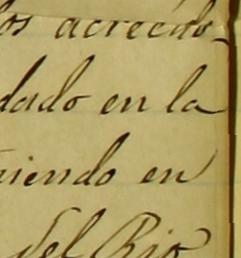 los acreedo-
dado en la
niendo en
del Rio